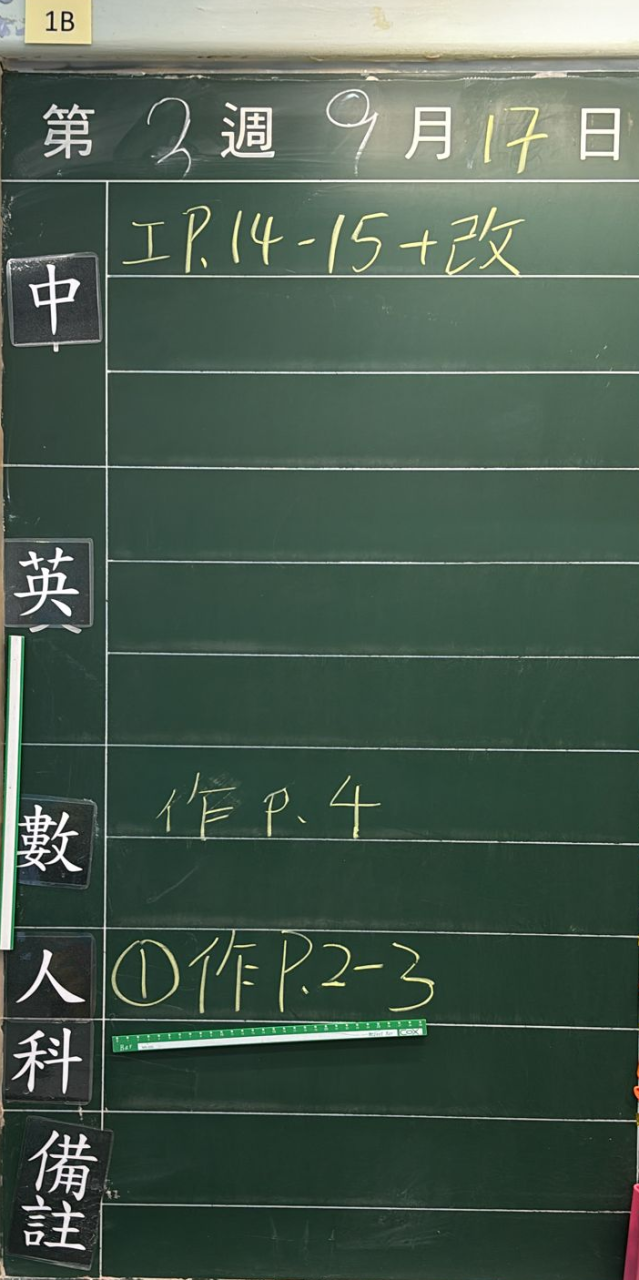 1B
第 3 週 9 月 17 日
中 工P.14-15+改
英
數 作P.4
人 ①作P.2-3
科
備註